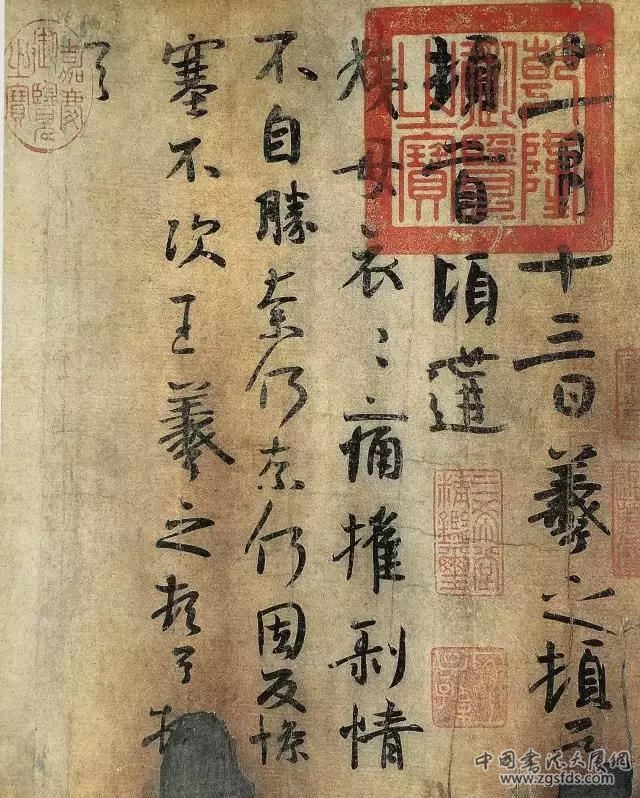 乾隆御覽之寶
十一月十三日羲之頓首
頓首頃遘
姨母哀〻痛摧剝情
不自勝奈何奈何因反慘
塞不次王羲之頓首頓
首
嘉慶御覽之寶
三希堂精鑑璽
中国书法大厦网
www.zgsfds.com